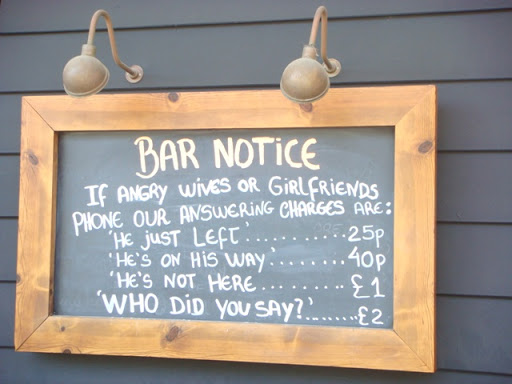 BAR NOTICE
IF ANGRY WIVES OR GIRLFRIENDS
PHONE OUR ANSWERING CHARGES ARE:
'HE JUST LEFT'..........25p
'HE'S ON HIS WAY'........40p
'HE'S NOT HERE..........£1
'WHO DID YOU SAY?'........£2